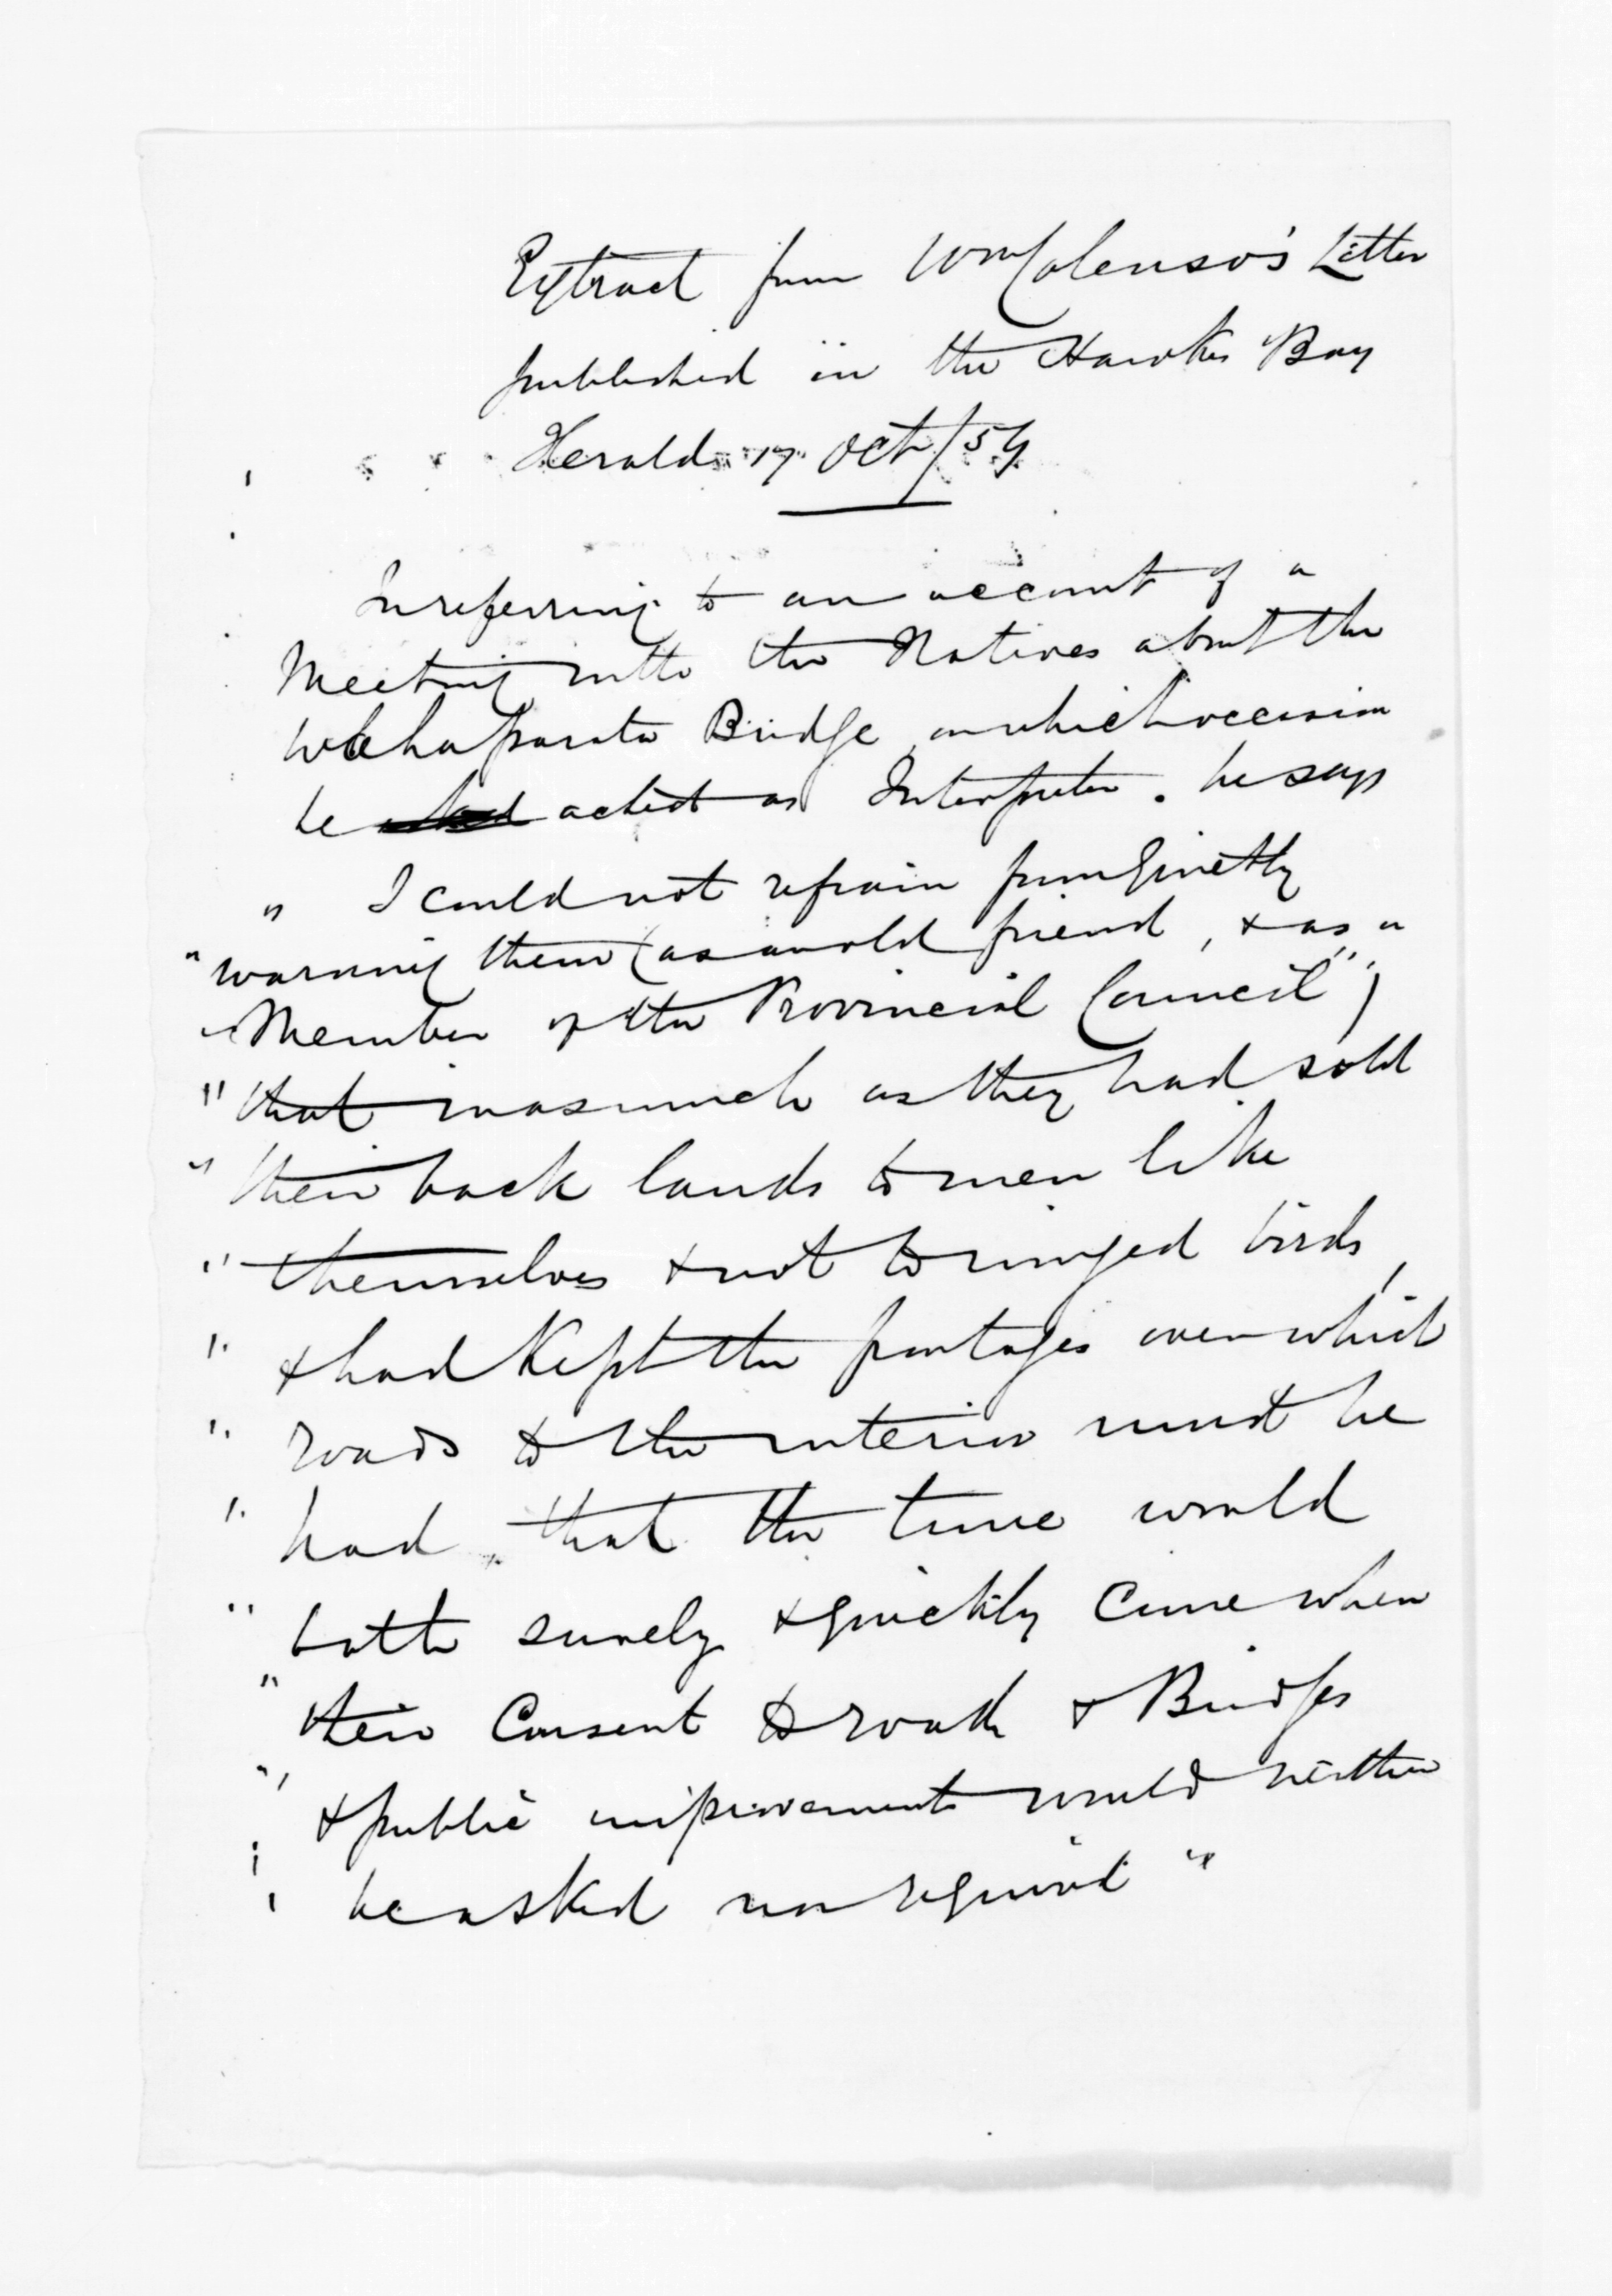 Extract from Wm Colenso's Letter
published in the Hawkes Bay
Herald 17 Oct/59
In referring to an account of a
Meeting with the Natives about the
Bridge, on which occasion
he acted as Interpreter. he says
" I could not refrain from quietly
" warning them (as an old friend, & as a
" Member of the Provincial Council")
" that inasmuch as they had sold
" their back lands to men like
" themselves & not to winged birds,
" & had kept the portages over which
" roads to the interior must be
" had, that the time would
" both surely & quickly come when
" their Consent to roads & Bridges
" & public improvements would neither
" be asked nor required "